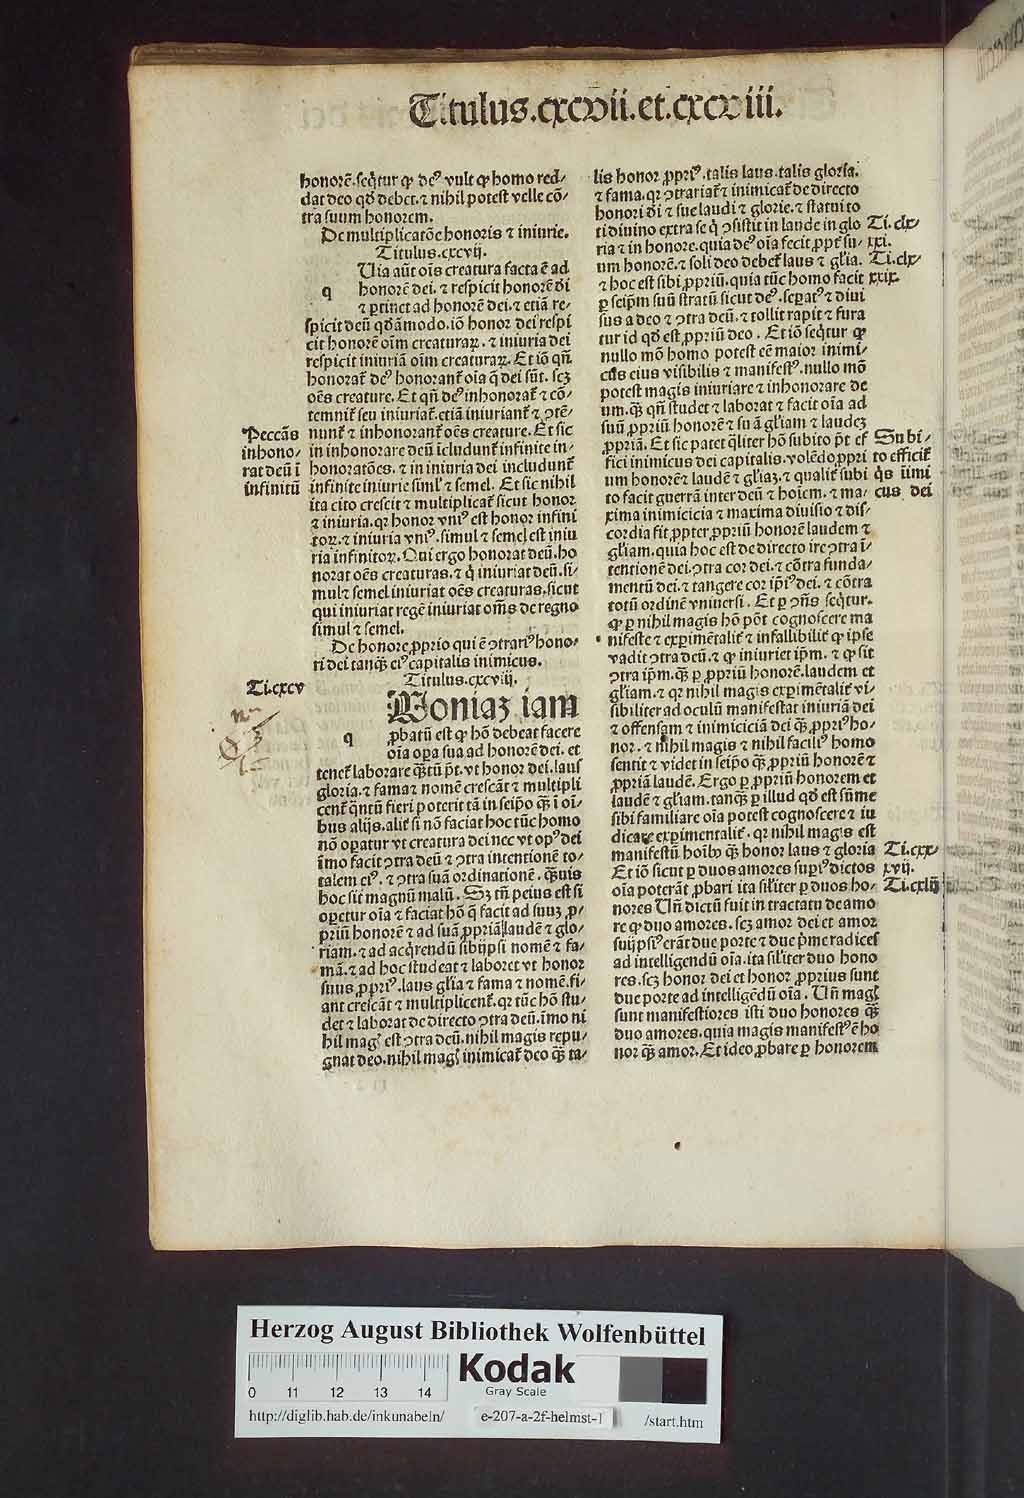 Titulus.cxcvii.et.cxcviii.
honorē.seq̄tur ꝙ deꝰ vult ꝙ homo red/
dat deo qđ debet.⁊ nihil potest velle cō/
tra suum honorem.
De multiplicatōe honoris ⁊ iniurie.
Titulus.cxcvij.
q
Uia aūt oīs creatura facta ē ad
honorē dei.⁊ respicit honorē di
⁊ ꝑtinet ad honorē dei.⁊ etiā re/
spicit deū qđāmodo.iō honor dei respi
cit honorē oīm creaturaꝝ.⁊ iniuria dei
respicit iniuriā oīm creaturaꝝ. Et iō qn̄
honorat̄ deꝰ honorant̄ oīa q̄ dei sūt. scꝫ
oēs creature. Et qn̄ deꝰ inhonorat̄ ⁊ cō/
temnit̄ seu iniuriat̄.etiā iniuriant̄ ⁊ ꝯtē/
nunt̄ ⁊ inhonorant̄ oēs creature. Et sic
in inhonorare deū īcludunt̄ infinite in/
honoratōes.⁊ in iniuria dei includunt̄
infinite iniurie simĺ ⁊ semel. Et sic nihil
ita cito crescit ⁊ multiplicat̄ sicut honor
⁊ iniuria.qꝛ honor vniꝰ est honor infini
toꝝ.⁊ iniuria vniꝰ.simul ⁊ semel est iniu
ria infinitoꝝ. Qui ergo honorat deū.ho
norat oēs creaturas.⁊ q̇ iniuriat deū.si/
mul ⁊ semel iniuriat oēs creaturas.sicut
qui iniuriat regē iniuriat om̄s de regno
simul ⁊ semel.
De honore ꝓprio qui ē ꝯtrariꝰ hono/
ri dei tanq̄ꝫ eiꝰ capitalis inimicus.
Titulus.cxcviij.
q
Uoniaꝫ iam
ꝓbatū est ꝙ hō debeat facere
oīa oꝑa sua ad honorē dei. et
tenet̄ laborare q̄ꝫtū pt̄.vt honor dei.laus
gloria.⁊ fama ⁊ nomē crescāt ⁊ multipli
cent̄ q̄ntū fieri poterit tā in seipō q̄ꝫ ī oī/
bus alijs.alit̄ si nō faciat hoc tūc homo
nō oꝑatur vt creatura dei nec vt opꝰ dei
īmo facit ꝯtra deū ⁊ ꝯtra intentionē to/
talem eiꝰ.⁊ ꝯtra suā ordinationē. q̄ꝫuis
hoc sit magnū malū. Sꝫ tn̄ peius est si
oꝑetur oīa ⁊ faciat hō q̄ facit ad suuꝫ ꝓ/
priū honorē ⁊ ad suā ꝓpriā laudē ⁊ glo/
riam.⁊ ad acq̄rendū sibijpsi nomē ⁊ fa/
mā.⁊ ad hoc studeat ⁊ laboret vt honor
suus ꝓpriꝰ.laus gl̄ia ⁊ fama ⁊ nomē.fi/
ant crescāt ⁊ multiplicent̄.qꝛ tūc hō stu/
det ⁊ laborat de directo ꝯtra deū.īmo ni
hil magꝭ est ꝯtra deū.nihil magis repu/
gnat deo.nihil magꝭ inimicat̄ deo q̄ꝫ ta/
Peccās
inhono/
rat deū ī
infinitū
Ti.cxcv
lis honor ꝓpriꝰ.talis laus.talis gloria.
⁊ fama.qꝛ ꝯtrariat̄ ⁊ inimicat̄ de directo
honori di ⁊ sue laudi ⁊ glorie.⁊ statui to
ti diuino extra se q̇ ꝯsistit in laude in glo
ria ⁊ in honore.quia deꝰ oīa fecit ꝓpt̄ su/
um honorē.⁊ soli deo debet̄ laus ⁊ gl̄ia.
⁊ hoc est sibi ꝓpriū.quia tūc homo facit
ꝑ seip̄m suū statū sicut deꝰ.seꝑatꝰ ⁊ diui
sus a deo ⁊ ꝯtra deū.⁊ tollit rapit ⁊ fura
tur id qđ est ꝓpriū deo. Et iō seq̄tur ꝙ
nullo mō homo potest eē maior inimi/
cus eius visibilis ⁊ manifestꝰ.nullo mō
potest magis iniuriare ⁊ inhonorare de
um.q̄ꝫ qn̄ studet ⁊ laborat ⁊ facit oīa ad
suū ꝓpriū honorē ⁊ suā gl̄iam ⁊ laudeꝫ
ꝓpriā. Et sic patet q̄liter hō subito pt̄ ef
fici inimicus dei capitalis.volēdo ꝓpri
um honorē ⁊ laudē ⁊ gl̄iaꝫ.⁊ qualit̄ subi
to facit guerrā inter deū ⁊ hoīem.⁊ ma/
xima inimicicia ⁊ maxima diuisio ⁊ dis/
cordia fit ꝓpter ꝓpriū honorē laudem ⁊
gl̄iam.quia hoc est de directo ire ꝯtra ī/
tentionē dei.ꝯtra cor dei.⁊ cōtra funda/
mentū dei.⁊ tangere cor ip̄iꝰ dei.⁊ cōtra
totū ordinē vniuersi. Et ꝑ ꝯn̄s seq̄tur.
ꝙ ꝑ nihil magis hō pōt cognoscere ma
nifeste ⁊ exꝑimētalit̄ ⁊ infallibilit̄ ꝙ ipse
vadit ꝯtra deū.⁊ ꝙ iniuriet ip̄m.⁊ ꝙ sit
ꝯtra ip̄m.q̄ꝫ ꝑ ꝓpriū honorē.laudem et
gl̄iam.⁊ qꝛ nihil magis exꝑimētalit̄ vi/
sibiliter ad oculū manifestat iniuriā dei
⁊ offensam ⁊ inimiciciā dei q̄ꝫ ꝓpriꝰ ho/
nor.⁊ nihil magis ⁊ nihil faciliꝰ homo
sentit ⁊ videt in seipō q̄ꝫ ꝓpriū honorē ⁊
ꝓpriā laudē. Ergo ꝑ ꝓpriū honorem et
laudē ⁊ gl̄iam.tanq̄ꝫ ꝑ illud qđ est sūme
sibi familiare oīa potest cognoscere ⁊ iu
dicare exꝑimentalit̄.qꝛ nihil magis est
manifestū hoībꝰ q̄ꝫ honor laus ⁊ gloria
Et iō sicut ꝑ duos amores supiꝰ dictos
oīa poterāt ꝓbari ita sil̄iter ꝑ duos ho/
nores Un̄ dictū fuit in tractatu de amo
re ꝙ duo amores.scꝫ amor dei et amor
suijpsiꝰ erāt due porte ⁊ due p̄me radices
ad intelligendū oīa.ita sil̄iter duo hono
res.scꝫ honor dei et honor ꝓprius sunt
due porte ad intelligēdū oīa. Un̄ magꝭ
sunt manifestiores isti duo honores q̄ꝫ
duo amores.quia magis manifestꝰ ē ho
nor q̄ꝫ amor. Et ideo ꝓbare ꝑ honorem
Ti.clx/
xxi.
Ti.clx/
xxix.
Subi/
to efficit̄
q̇s inimi
cus dei
Ti.cxx/
xvij.
Ti.cxlij
Herzog August Bibliothek Wolfenbüttel
Kodak
Gray Scale
0 11 12 13 14
http://diglib.hab.de/inkunabeln/
e-207-a-2f-helmst-1
/start.htm